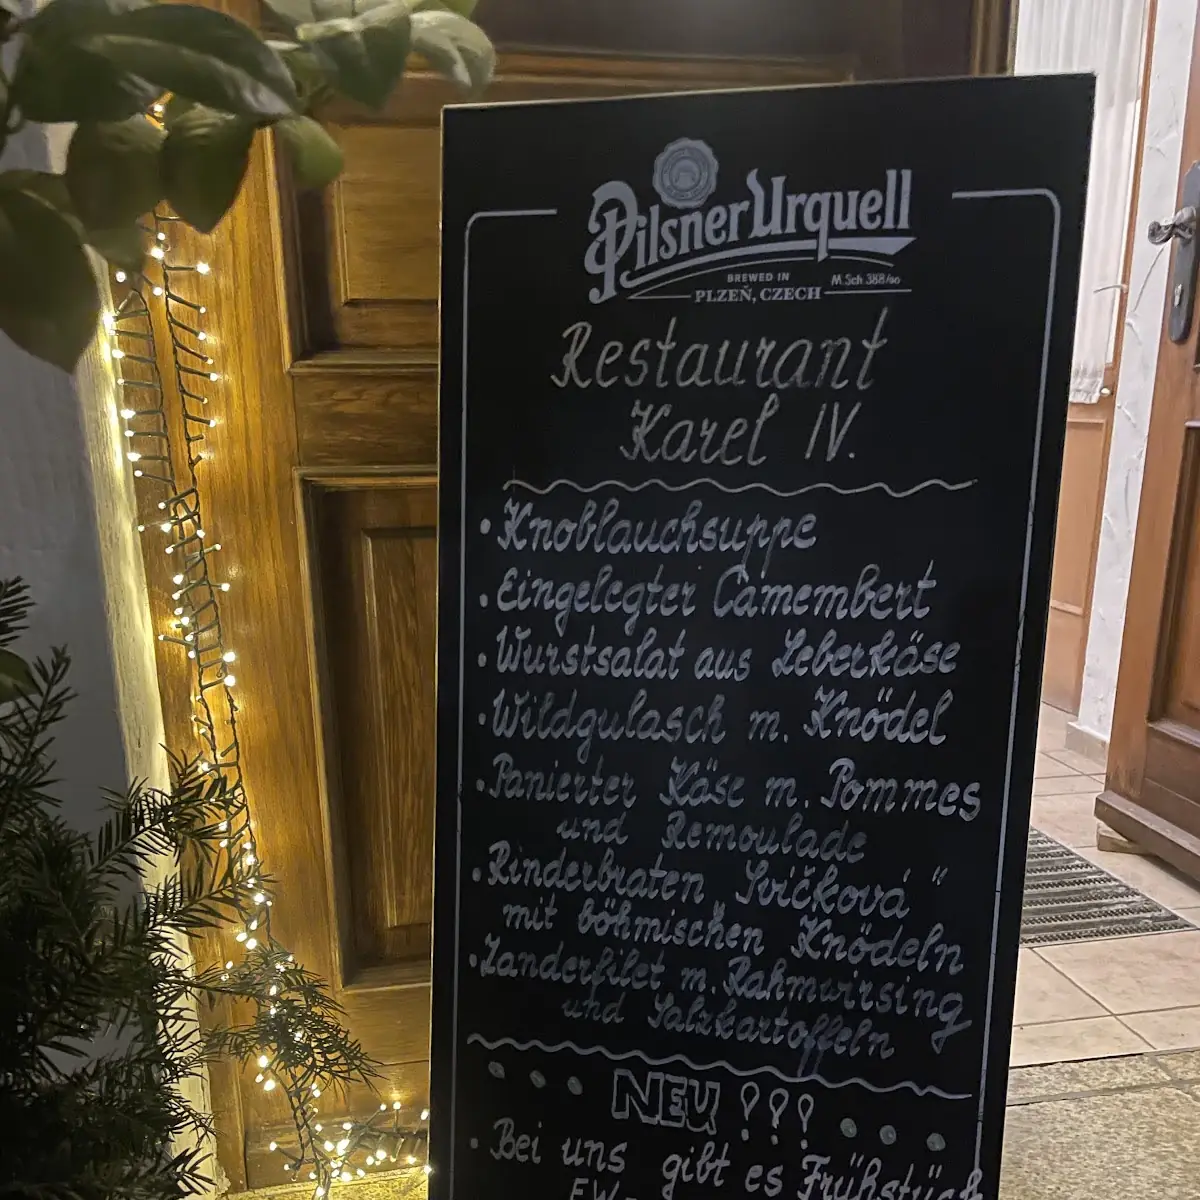 Pilsner Urquell
BREWED IN
PLZEŇ, CZECH
M.Sch 388/90
Restaurant
Karel IV.
• Knoblauchsuppe
• Eingelegter Camembert
• Wurstsalat aus Leberkäse
• Wildgulasch m. Knödel
• Panierter Käse m. Pommes
und Remoulade
• Rinderbraten „Svíčková“
mit böhmischen Knödeln
• Zanderfilet m. Rahmwirsing
und Salzkartoffeln
NEU !!!
• Bei uns gibt es Frühstück